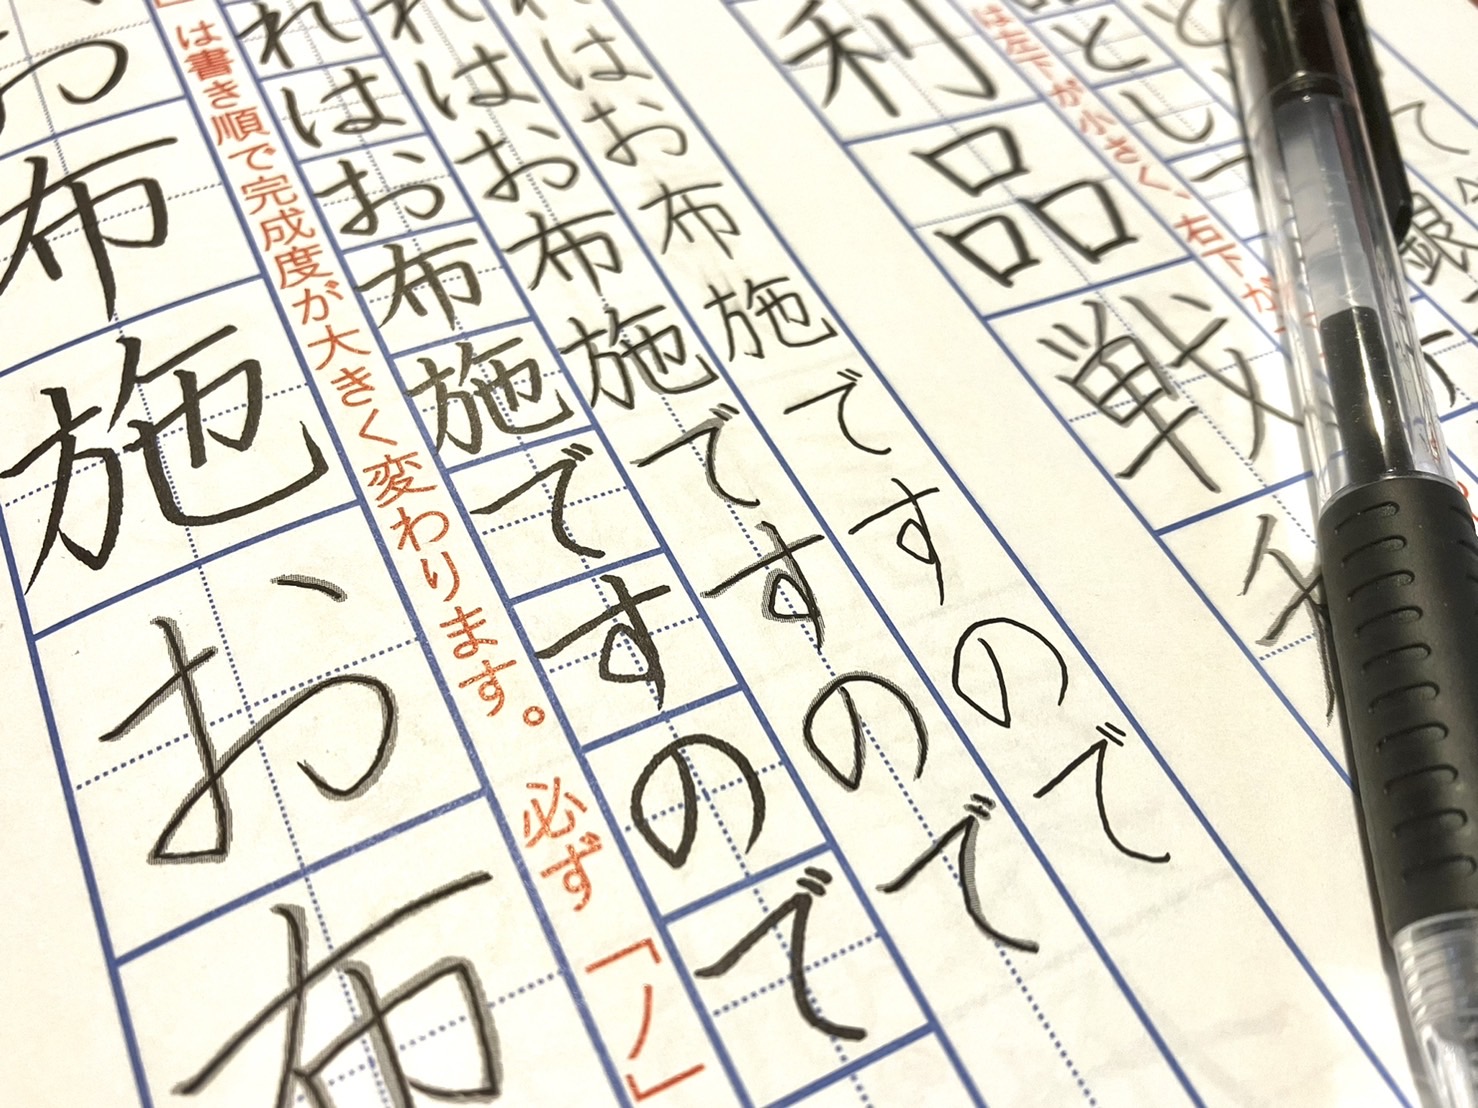 銀
とし
は左下が小さく、右下が
利品戦
はお布施ですので
れはお布施ですので
れはお布施ですので
」は書き順で完成度が大きく変わります。必ず「ノ」
お布施お布